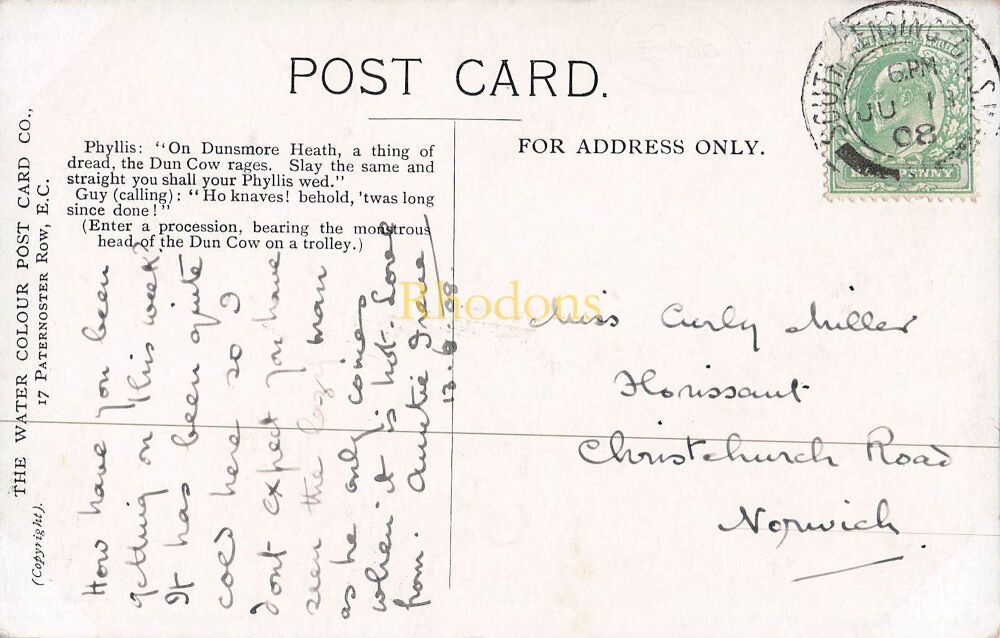 POST CARD.
Phyllis: "On Dunsmore Heath, a thing of
dread, the Dun Cow rages. Slay the same and
straight you shall your Phyllis wed."
Guy (calling): "Ho knaves! behold, 'twas long
since done!"
(Enter a procession, bearing the monstrous
head of the Dun Cow on a trolley.)
FOR ADDRESS ONLY.
THE WATER COLOUR POST CARD CO.,
17 PATERNOSTER ROW, E.C.
(Copyright).
How have you been
getting on this week?
It has been quite
cold here so I
dont expect you have
seen the lazy man
as he only comes
when it is hot. Love
from. Auntie Irene
13.6.08.
Miss Curly Miller
Florissant
Christchurch Road
Norwich
SOUTH KENSINGTON. S.W.
6.PM
JU 1
08
HALFPENNY
Rhodons